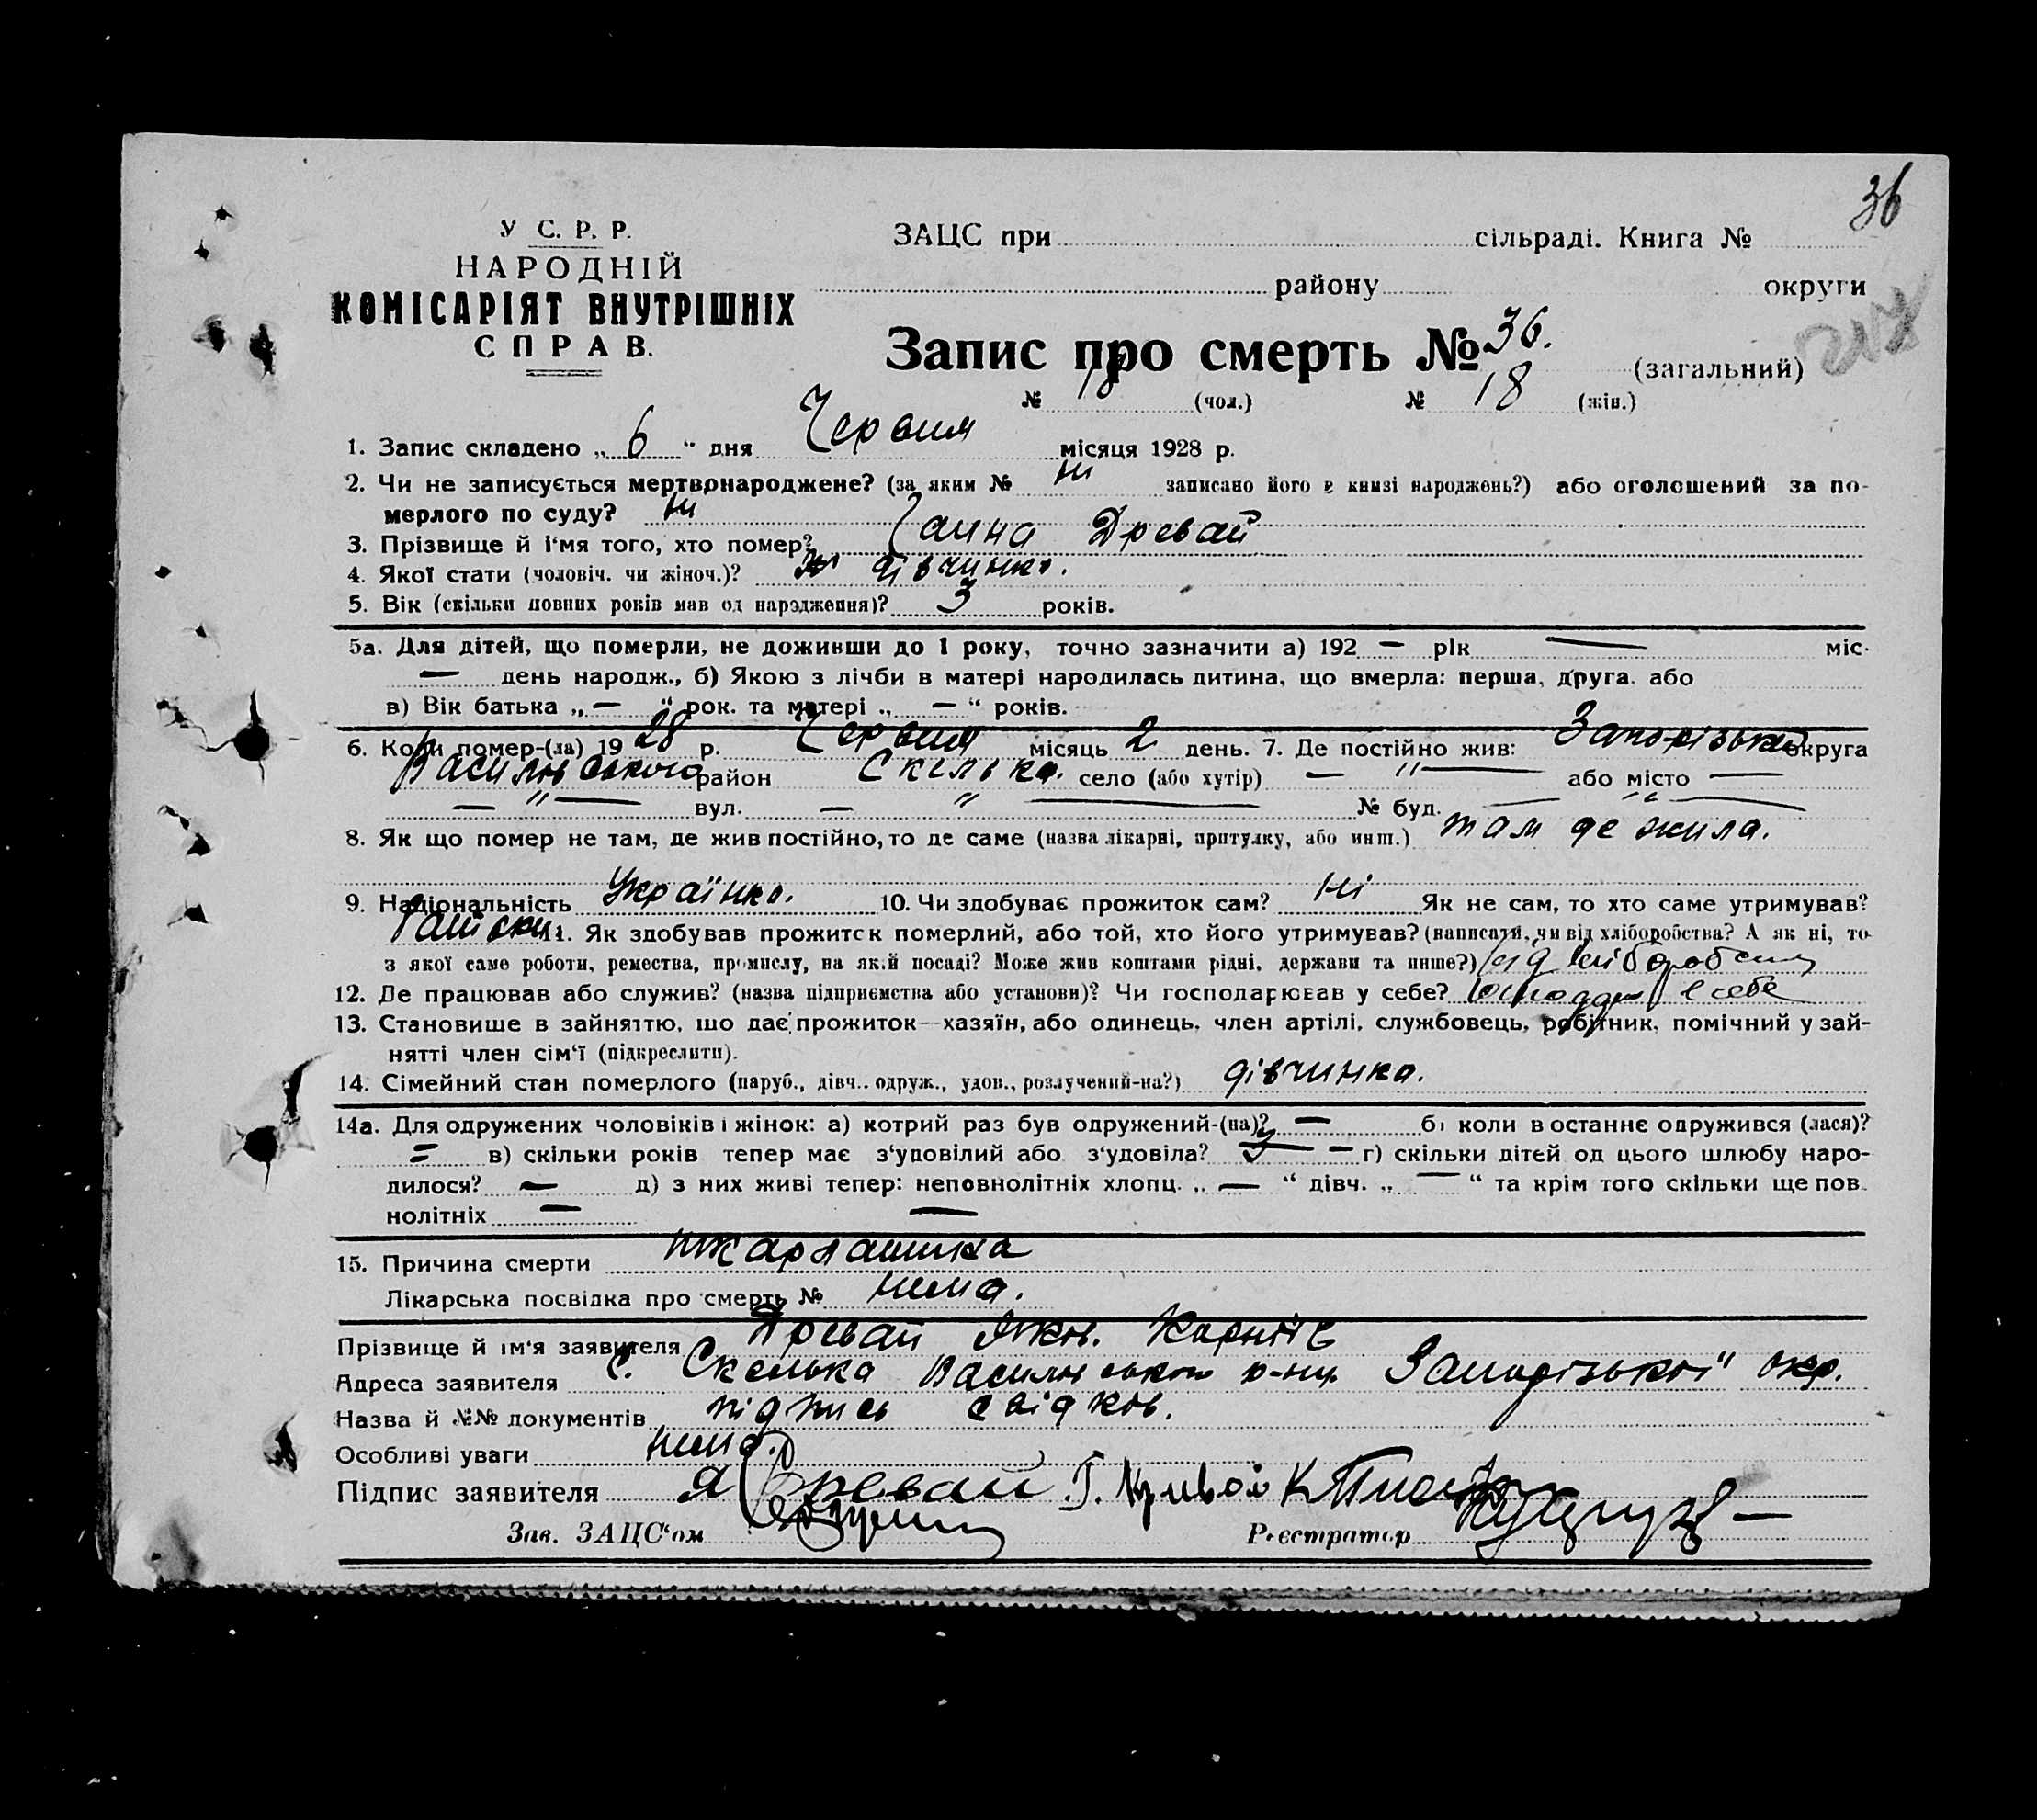 36
У С. Р. Р.
НАРОДНІЙ
КОМІСАРІЯТ ВНУТРІШНІХ
СПРАВ.
ЗАЦС при сільраді. Книга №
району округи
Запис про смерть № 36. (загальний)
№ 18 (чол.) № 18 (жін.)
1. Запис складено „ 6 “ дня Червня місяця 1928 р.
2. Чи не записується мертвонароджене? (за яким № ні записано його в книзі народжень?) або оголошений за по-
мерлого по суду? ні
3. Прізвище й і‘мя того, хто помер? Ганна Древай
4. Якої стати (чоловіч. чи жіноч.)? дівчинка.
5. Вік (скільки повних років мав од народження)? 3 років.
5а. Для дітей, що померли, не доживши до 1 року, точно зазначити а) 192 — рік — міс.
— день народж., б) Якою з лічби в матері народилась дитина, що вмерла: перша, друга. або
в) Вік батька „ — “ рок. та матері „ — “ років.
6. Коли помер-(ла) 19 28 р. Червня місяць 2 день. 7. Де постійно жив: Запорізької округа
Василівського район Скелька. село (або хутір) — " — або місто —
— " — вул. — " — № буд. — " —
8. Як що помер не там, де жив постійно, то де саме (назва лікарні, притулку, або инш.) там де жила.
9. Національність Українка. 10. Чи здобуває прожиток сам? Ні Як не сам, то хто саме утримував?
Батьки 11. Як здобував прожиток померлий, або той, хто його утримував? (написати, чи від хліборобства? А як ні, то
з якої саме роботи, ремества, промислу, на якій посаді? Може жив коштами рідні, держави та инше?) від хліборобства
12. Де працював або служив? (назва підприємства або установи)? Чи господарював у себе? в себе
13. Становише в зайняттю, що дає прожиток—хазяїн, або одинець, член артілі, службовець, робітник, помічний у зай-
нятті член сім‘ї (підкреслити).
14. Сімейний стан померлого (паруб., дівч., одруж., удов., розлучений-на?) дівчинка.
14а. Для одружених чоловіків і жінок: а) котрий раз був одружений-(на)? — б) коли в останнє одружився (лася)?
= в) скільки років тепер має з‘удовілий або з‘удовіла? — г) скільки дітей од цього шлюбу наро-
дилося? — д) з них живі тепер: неповнолітніх хлопц. „ — “ дівч. „ — “ та крім того скільки ще пов
нолітніх — —
15. Причина смерти
Лікарська посвідка про смерть № нема.
Прізвище й ім‘я заявителя Древай Яков. Карніїв
Адреса заявителя С. Скелька Василівського р-ну Запорізької окр.
Назва й №№ документів підпись свідків.
Особливі уваги нема.
Підпис заявителя Я Древай Г. Кривой К
Зав. ЗАЦС‘ом Реєстратор